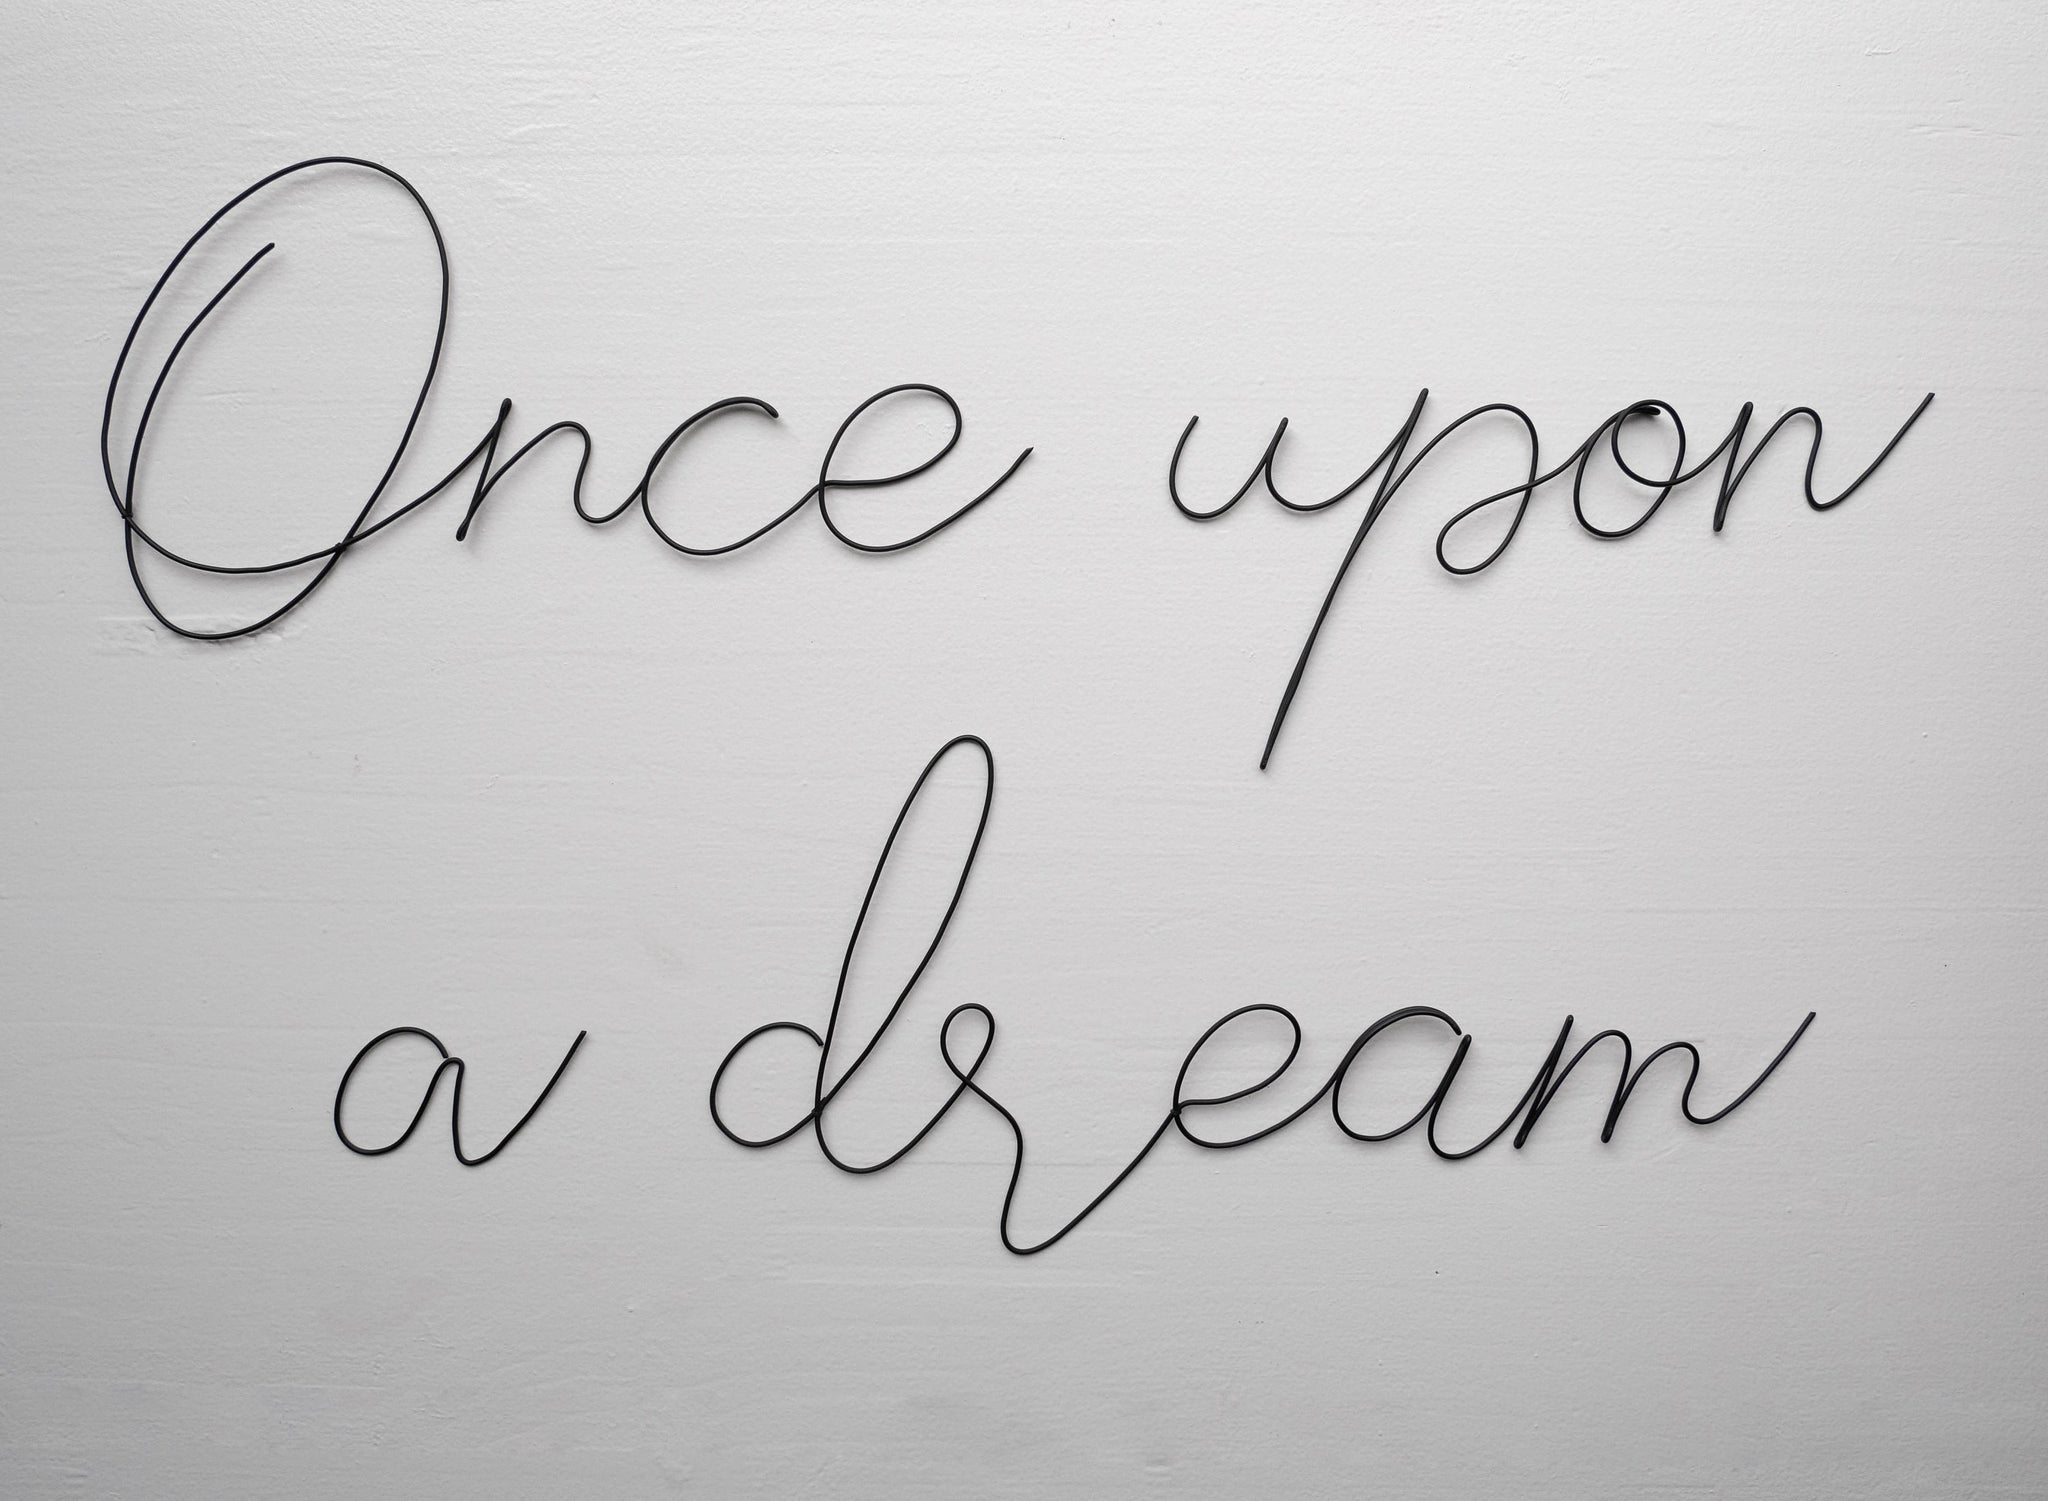 Once upon
a dream